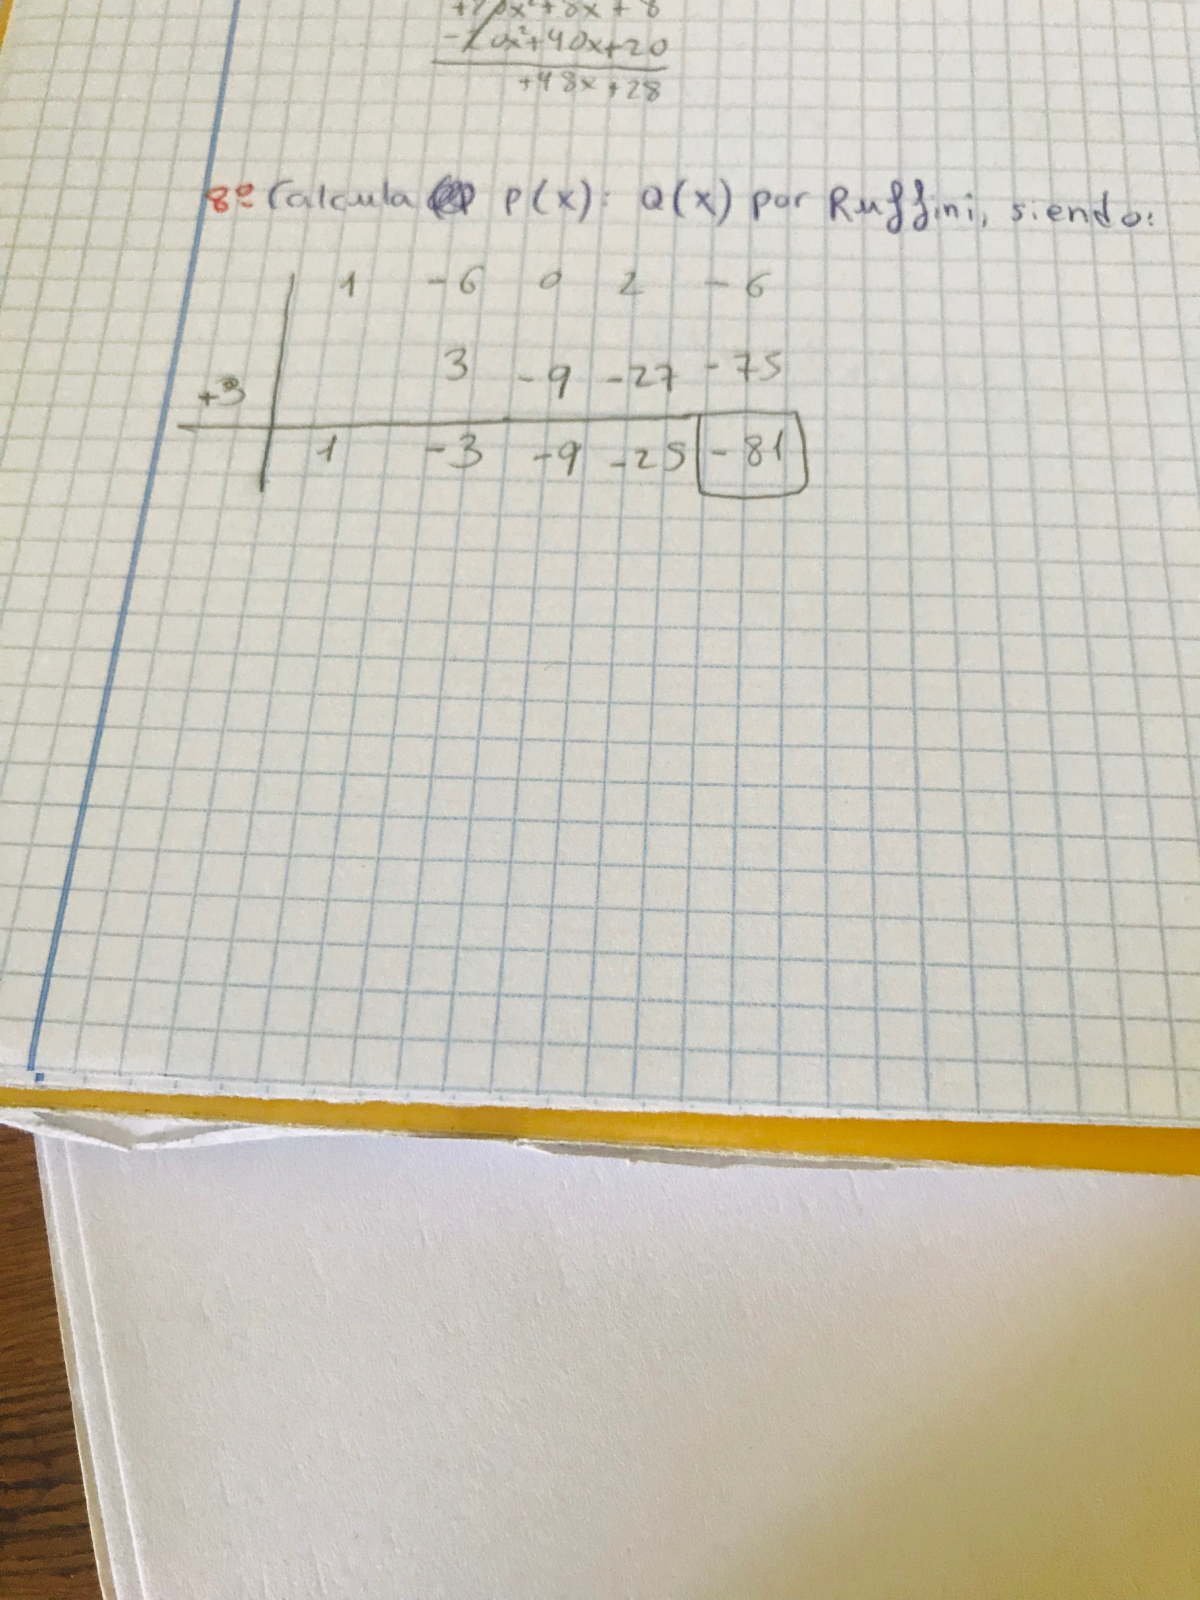 x²+8x+8
-20x²+40x+20
+48x+28
8º Calcula P(x): Q(x) por Ruffini, siendo:
1 -6 0 2 -6
+3 3 -9 -27 -75
1 -3 -9 -25 -81